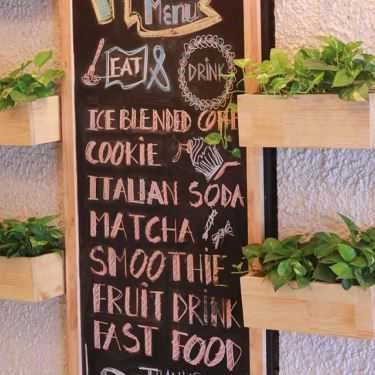 Menu
EAT DRINK
ICE BLENDED COFF
COOKIE
ITALIAN SODA
MATCHA
SMOOTHIE
FRUIT DRINK
FAST FOOD
THANKS